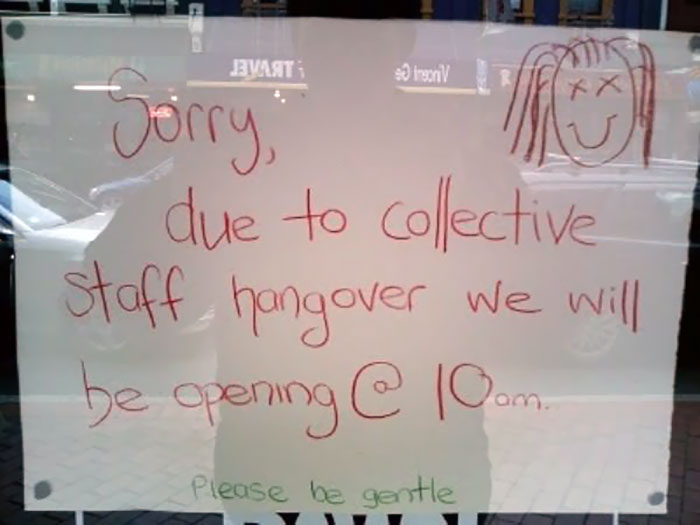 JƎVAЯT
Vincent Ge
Sorry,
due to collective
staff hangover we will
be opening @ 10am.
Please be gentle